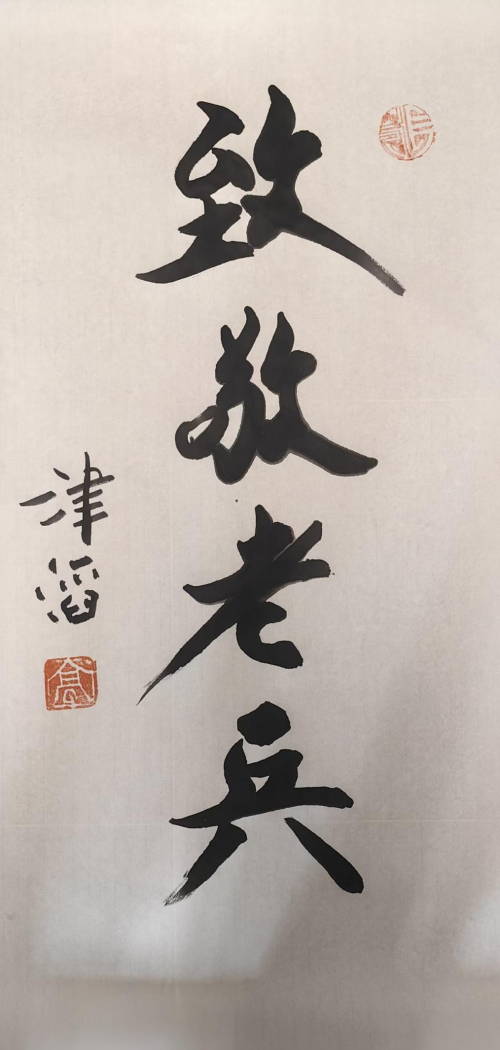 致敬老兵
津滔